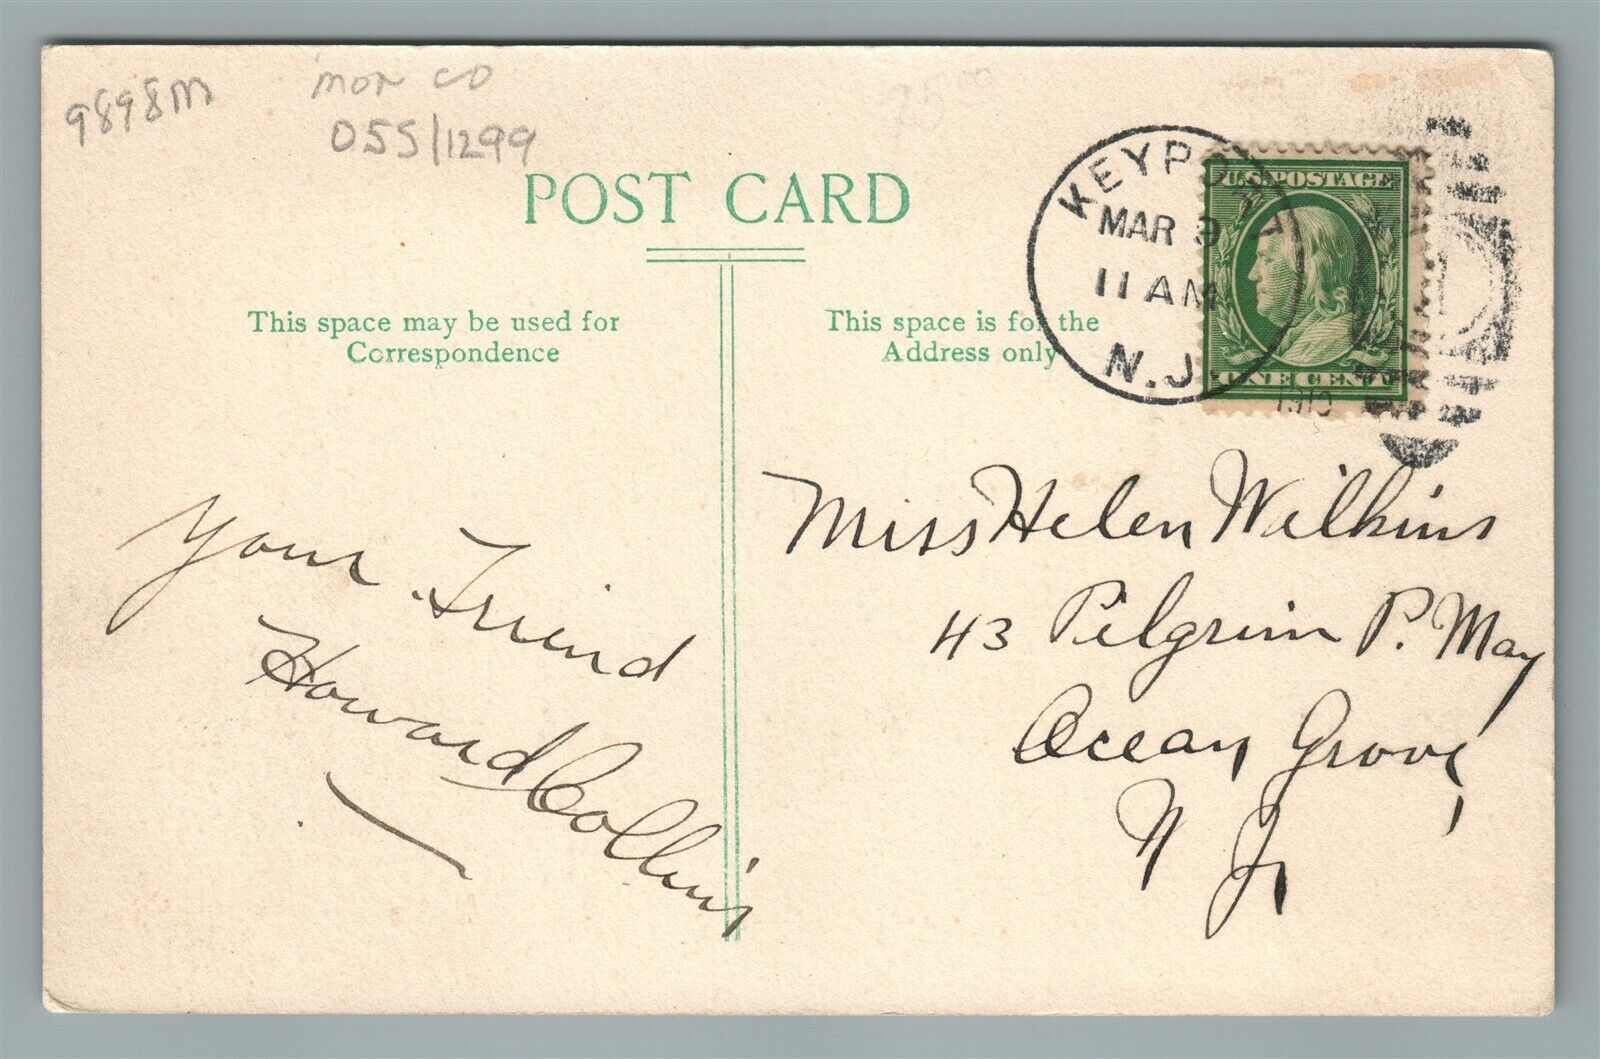 9898M
mon co
055/1299
POST CARD
This space may be used for
Correspondence
This space is for the
Address only
KEYPORT
MAR 9
11 AM
N.J.
1910
U.S. POSTAGE
ONE CENT
Your Friend
Howard Collins
Miss Helen Wilkins
43 Pilgrim P. Way
Ocean Grove,
N J